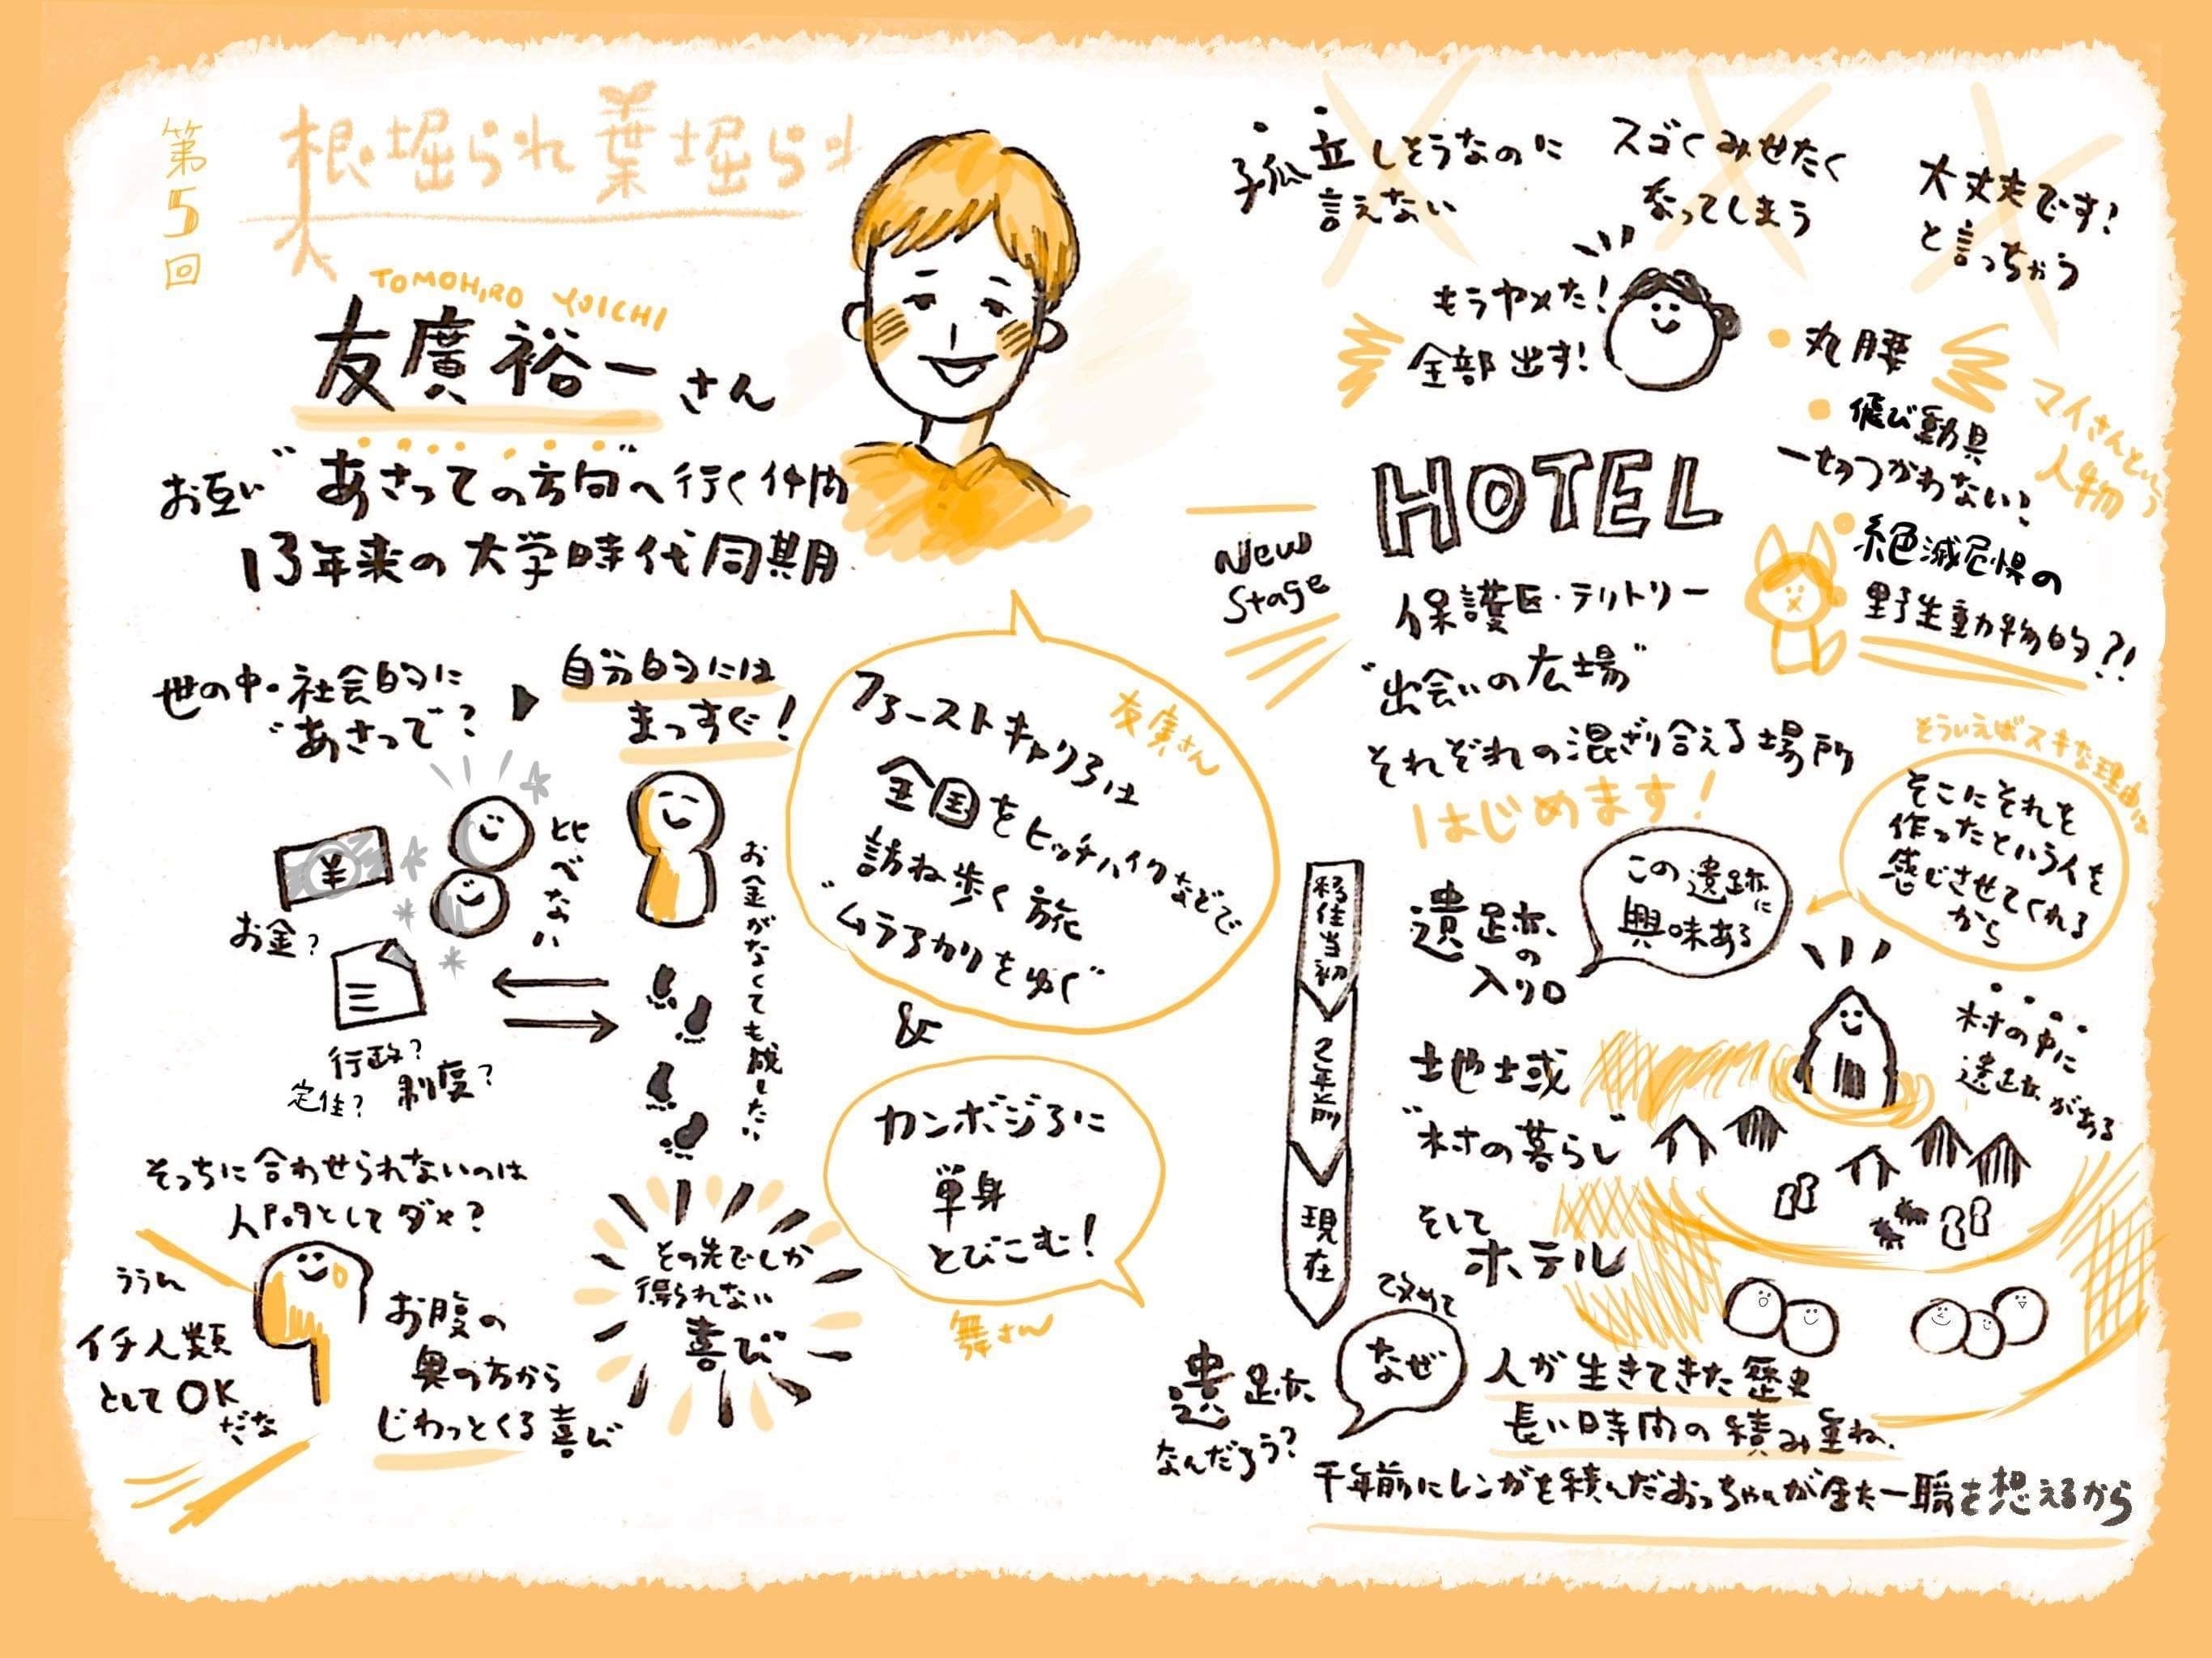 第5回
根堀られ葉堀られ
TOMOHIRO YOICHI
友廣裕一さん
お互い"あさっての方向"へ行く仲間
13年来の大学時代同期
世の中・社会的に
"あさって"?
自分的には
まっすぐ!
比べない
¥
お金?
行政?
定住?
制度?
お金がなくても成したい
そっちに合わせられないのは
人間としてダメ?
ううん
イチ人類
としてOK
だな
お腹の
奥の方から
じわっとくる喜び
その先でしか
得られない
喜び
友廣さん
ファーストキャリアは
全国をヒッチハイクなどで
訪ね歩く旅
"ムラアカリをゆく"
&
カンボジアに
単身
とびこむ!
舞さん
孤立しそうなのに
言えない
スゴくみせたく
なってしまう
大丈夫です!
と言っちゃう
もうヤメた!
全部出す!
マイさんという
人物
丸腰
飛び動具
一切つかわない!
絶滅危惧の
野生動物的?!
New
Stage
HOTEL
保護区・テリトリー
"出会いの広場"
それぞれの混ざり合える場所
はじめます!
そういえばスキな理由は
そこにそれを
作ったという人を
感じさせてくれる
から
移住当初
2年前
現在
遺跡
の
入り口
この遺跡に
興味ある
村の中に
遺跡がある
地域
"村の暮らし"
そして
ホテル
改めて
なぜ
遺跡
なんだろう?
人が生きてきた歴史
長い時間の積み重ね、
千年前にレンガを積んだおっちゃんが生きた一瞬を想えるから